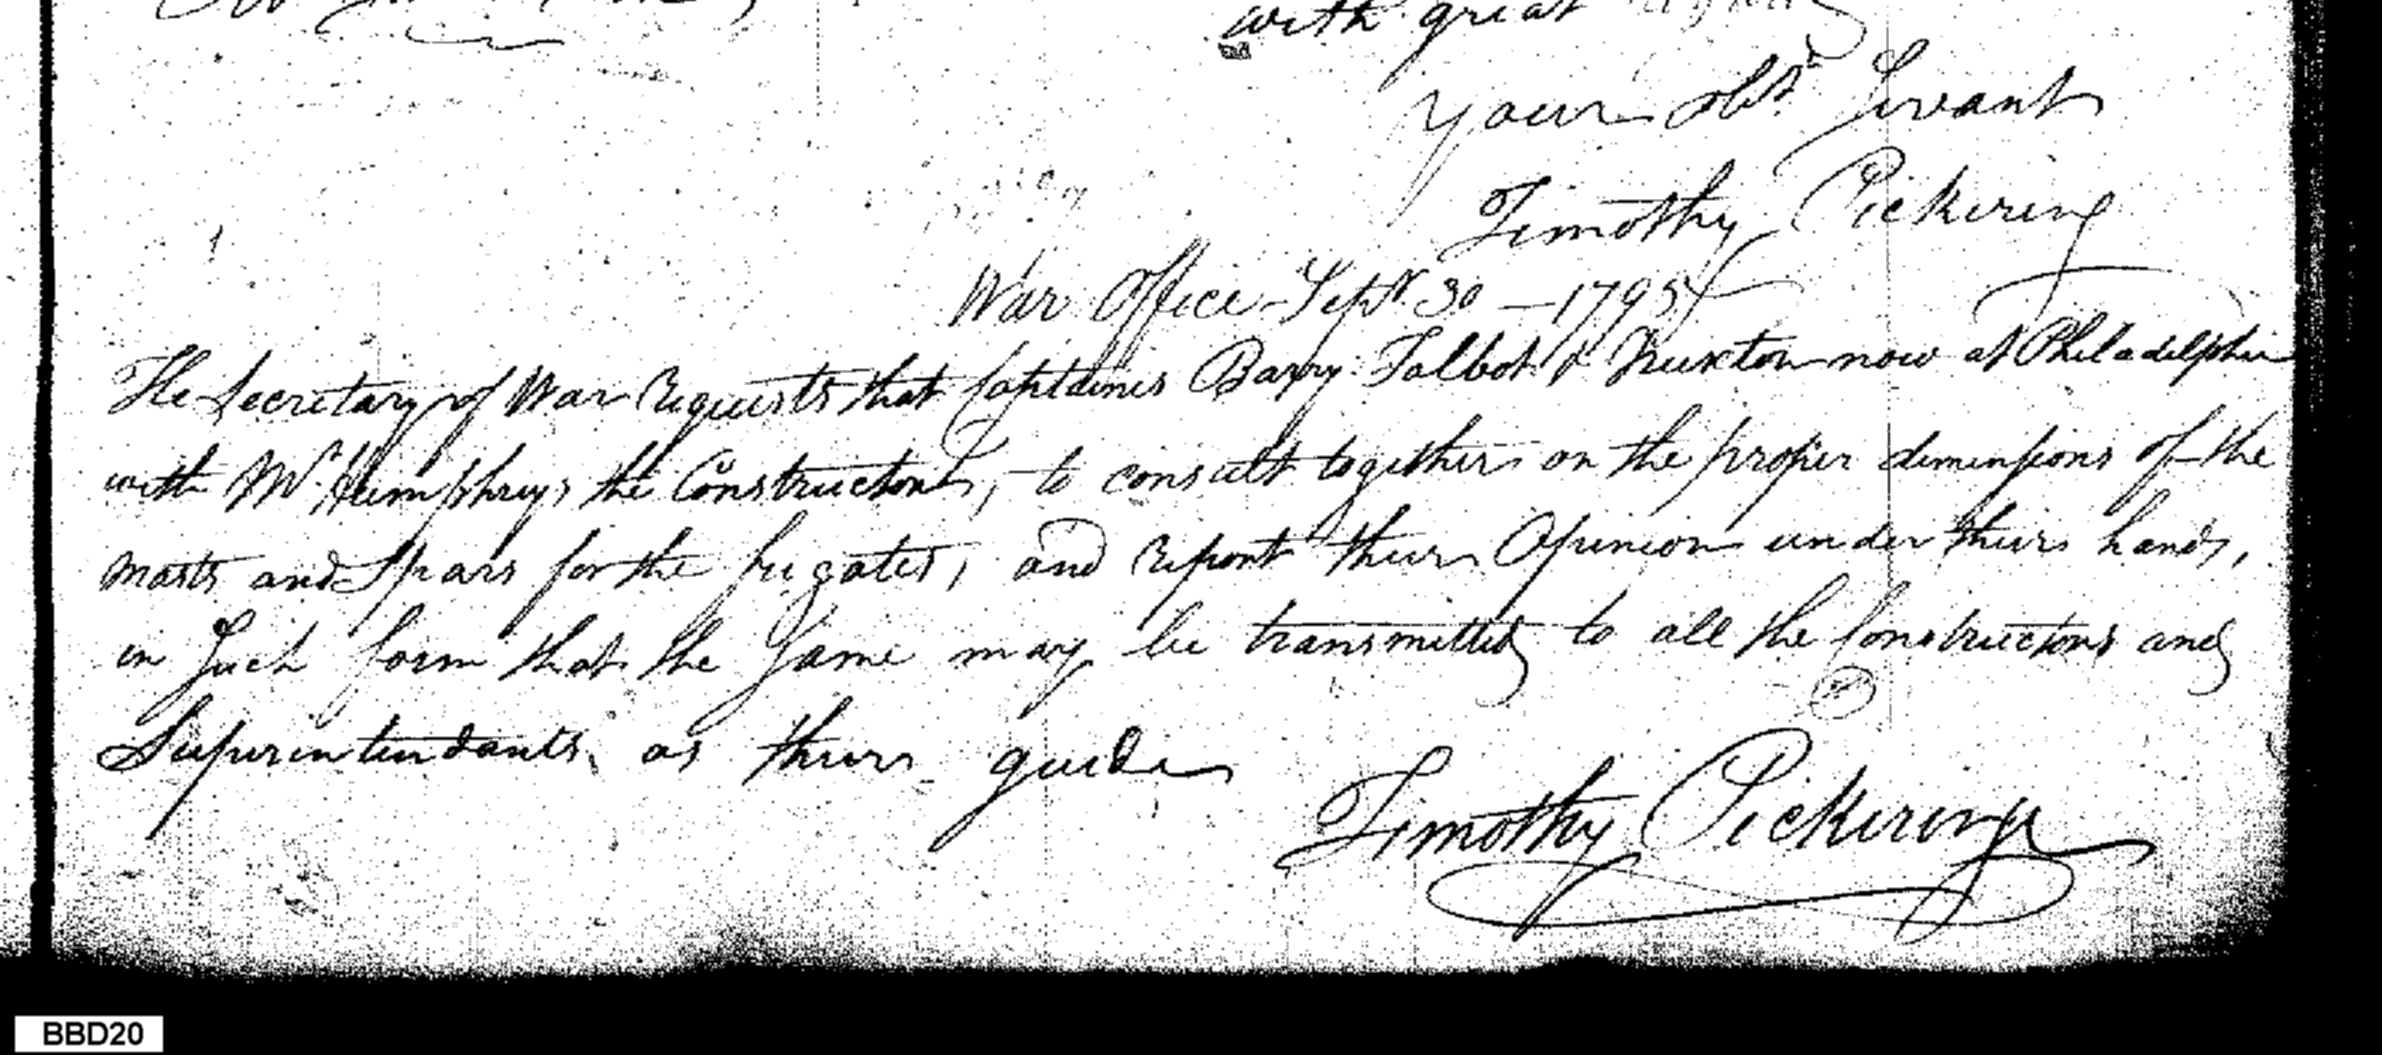 with great
your obt. Servant
Timothy Pickering
War Office Septr. 30 — 1795
The Secretary of War Requests that Captains Barry Talbot & Truxton now at Philadelphia
with Mr. Humphreys the Constructor, to consult together on the proper dimensions of the
masts and Spars for the frigates, and report their Opinion under their hands,
in Such form that the Same may be transmitted to all the Constructors and
Superintendants, as their guide
Timothy Pickering
BBD20